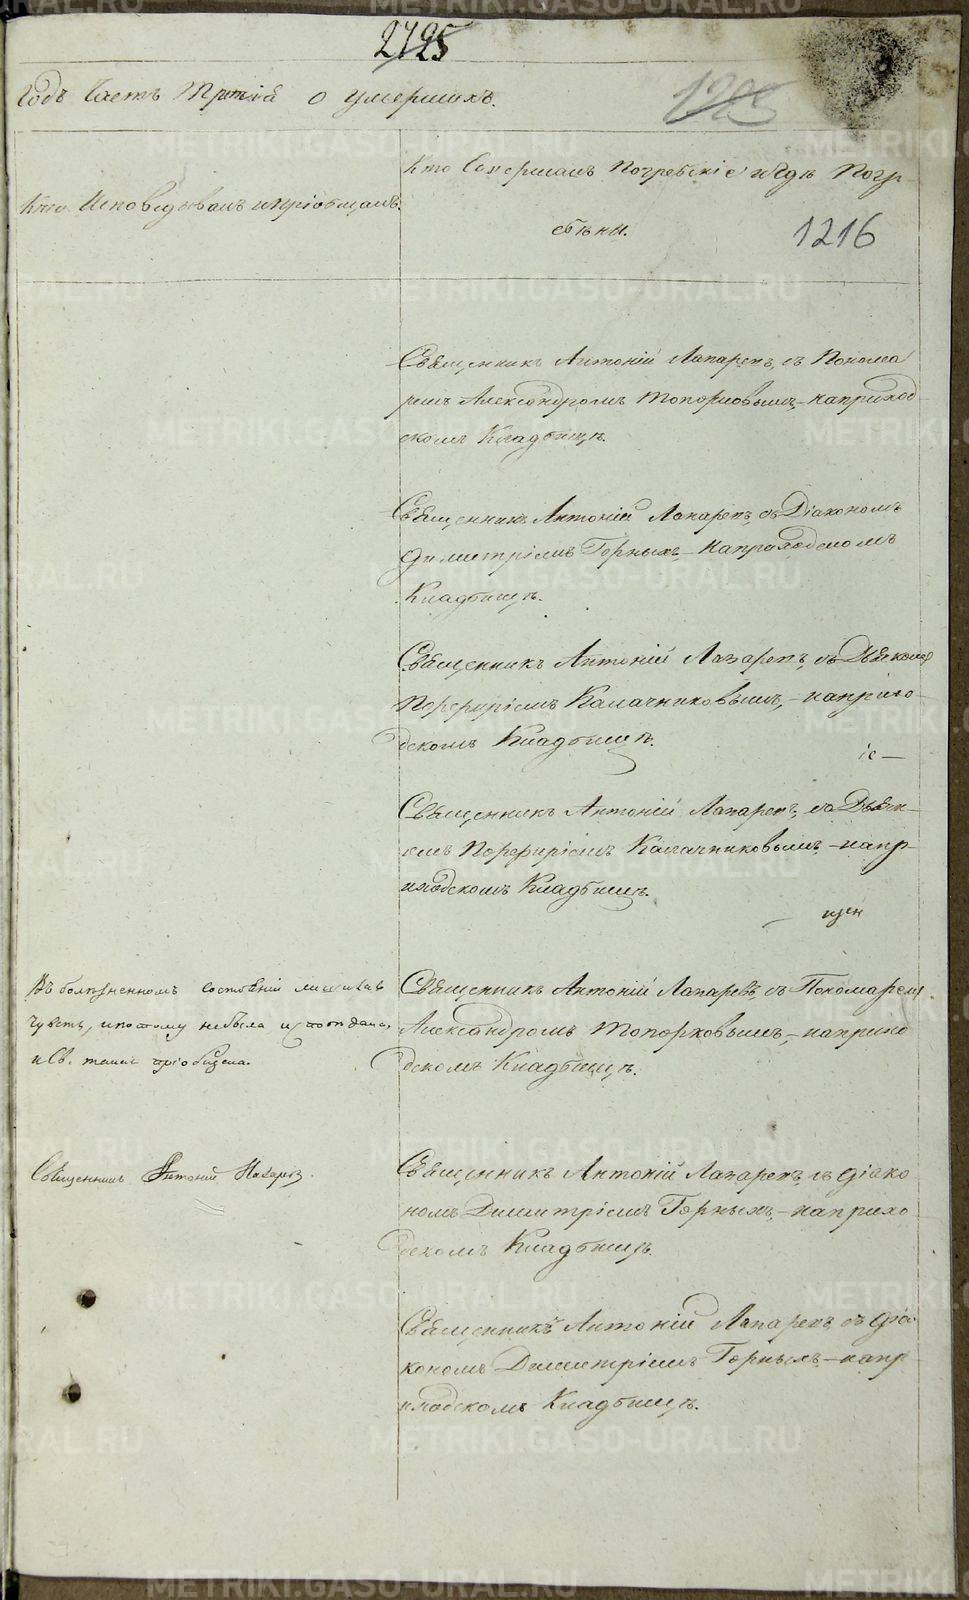 2725
Годъ Часть Третія о умершихъ.
1225
Кто Исповѣдывалъ и пріобщалъ.
Кто Совершалъ Погребеніе и гдѣ Погр-
бѣны.
1216
Священникъ Антоній Лапаревъ, съ Понома
ремъ Александромъ Топорковымъ, на приход-
скомъ Кладбищѣ.
Священникъ Антоній Лапаревъ, съ Діакономъ
Димитріемъ Горныхъ, на приходскомъ
Кладбищѣ.
Священникъ Антоній Лапаревъ, съ Дьячкомъ
Порфиріемъ Калачниковымъ, на прихо-
дскомъ Кладбищѣ.
Священникъ Антоній Лапаревъ, съ Дьяч-
комъ Порфиріемъ Калачниковымъ, на пр-
иходскомъ Кладбищѣ.
Въ болѣзненномъ состояніи лишилась
чувствъ, и потому не была исповѣдана,
и Св. таинъ пріобщена.
Священникъ Антоній Лапаревъ, съ Пономаремъ
Александромъ Топорковымъ, на прихо
дскомъ Кладбищѣ.
Священникъ Антоній Лапаревъ.
Священникъ Антоній Лапаревъ, съ діако
номъ Димитріемъ Горныхъ, на прихо
дскомъ Кладбищѣ.
Священникъ Антоній Лапаревъ, съ діа-
кономъ Димитріемъ Горныхъ, на пр
иходскомъ Кладбищѣ.
METRIKI.GASO-URAL.RU